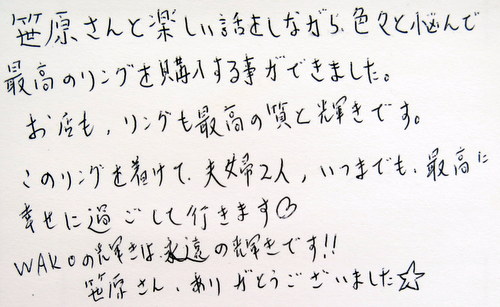 笹原さんと楽しい話をしながら、色々と悩んで
最高のリングを購入する事ができました。
お店も、リングも最高の質と輝きです。
このリングを着けて、夫婦2人、いつまでも、最高に
幸せに過ごして行きます♡
WAKOの輝きは永遠の輝きです!!
笹原さん、ありがとうございました☆